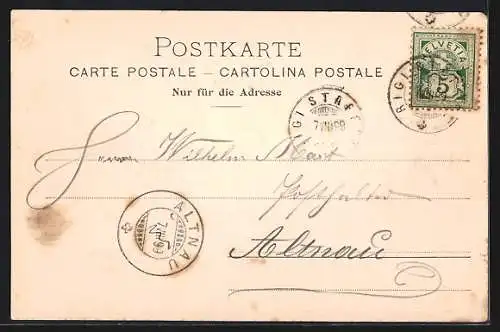 POSTKARTE
CARTE POSTALE – CARTOLINA POSTALE
Nur für die Adresse
HELVETIA
5
RIGI STAFFEL
Herrn Wilhelm
Posthalter
Altnau
ALTNAU